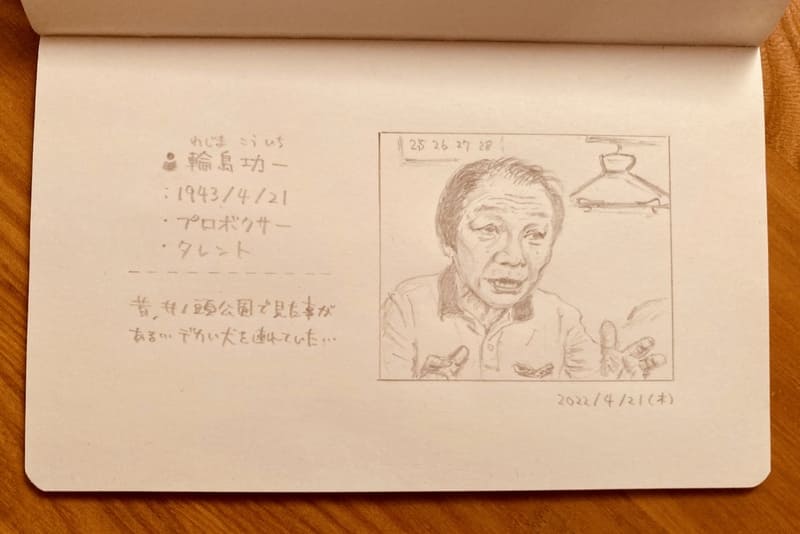 わじま こういち
輪島功一
:1943/4/21
・プロボクサー
・タレント
昔、井ノ頭公園で見た事が
ある… デカい犬を連れていた…
25 26 27 28
2022/4/21(木)